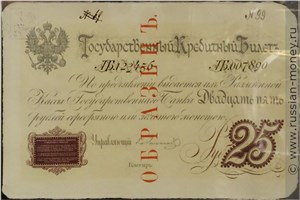 № 4.
№ 99
Государственный Кредитный Билетъ.
АК122456 АК007890
По предъявленіи выдается изъ Размѣнной
Кассы Государственнаго Банка Двадцать пять
рублей серебряною или золотою монетою.
Управляющій
Кассиръ
25
ОБРАЗЕЦЪ.